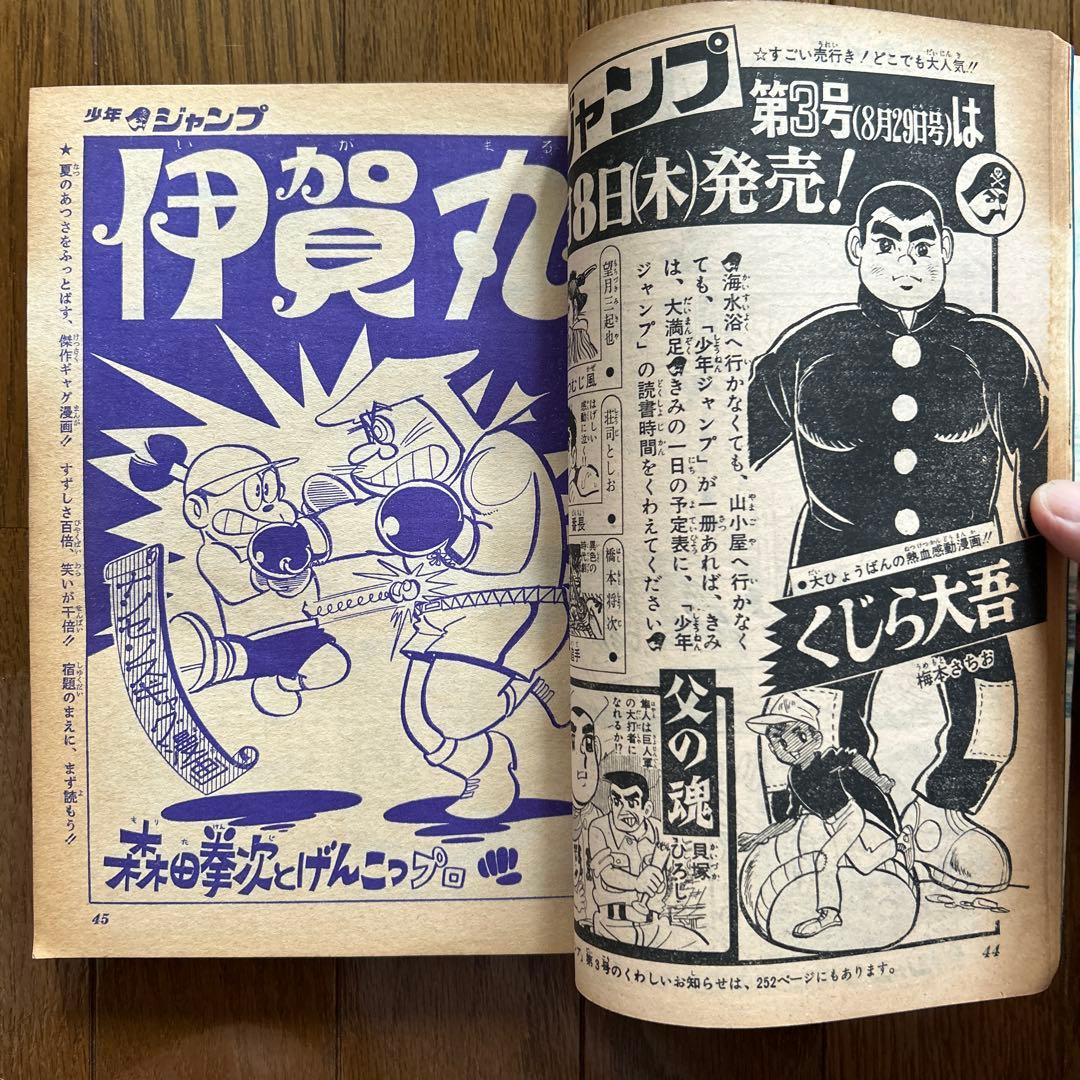 ジャンプ
☆すごい売行き！どこでも大人気!!
第3号(8月29日号)は
8日(木)発売！
海水浴へ行かなくても、山小屋へ行かなく
ても、「少年ジャンプ」が一冊あれば、きみ
は、大満足 きみの一日の予定表に、「少年
ジャンプ」の読書時間をくわえてください
●大ひょうばんの熱血感動漫画!!
くじら大吾
梅本さちお
望月三起也●
むじ風
荘司としお●
はげしい
感動に泣く
番長
橋本将次●
異色の
時代劇
父の魂
貝塚ひろし
隼人は巨人軍
の大打者に
なれるか!?
第3号のくわしいお知らせは、252ページにもあります。
44
少年ジャンプ
伊賀丸
★夏のあつさをふっとばす、傑作ギャグ漫画!! すずしさ百倍、笑いが千倍!! 宿題のまえに、まず読もう!!
森田拳次とげんこつプロ
45